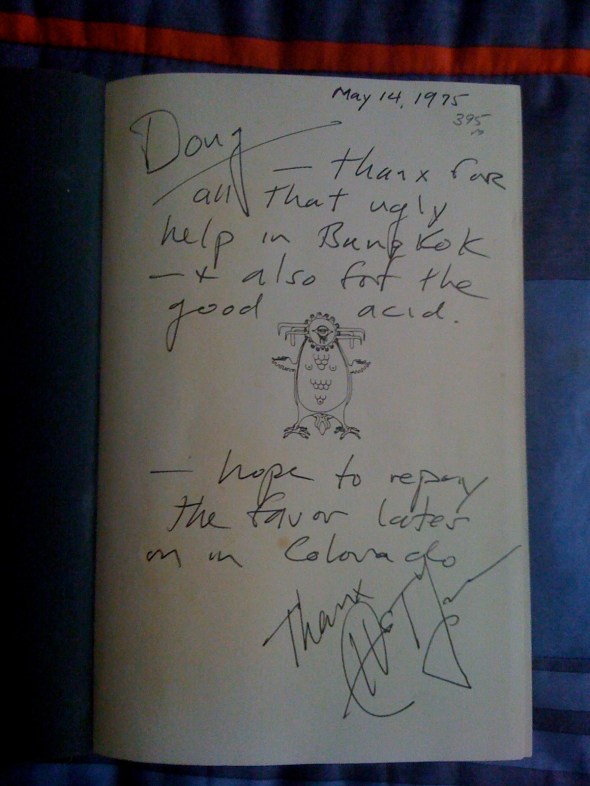 May 14, 1975
395
Doug
— thanx for
all that ugly
help in Bangkok
— + also for the
good acid.
— hope to repay
the favor later
on in Colorado
Thanx